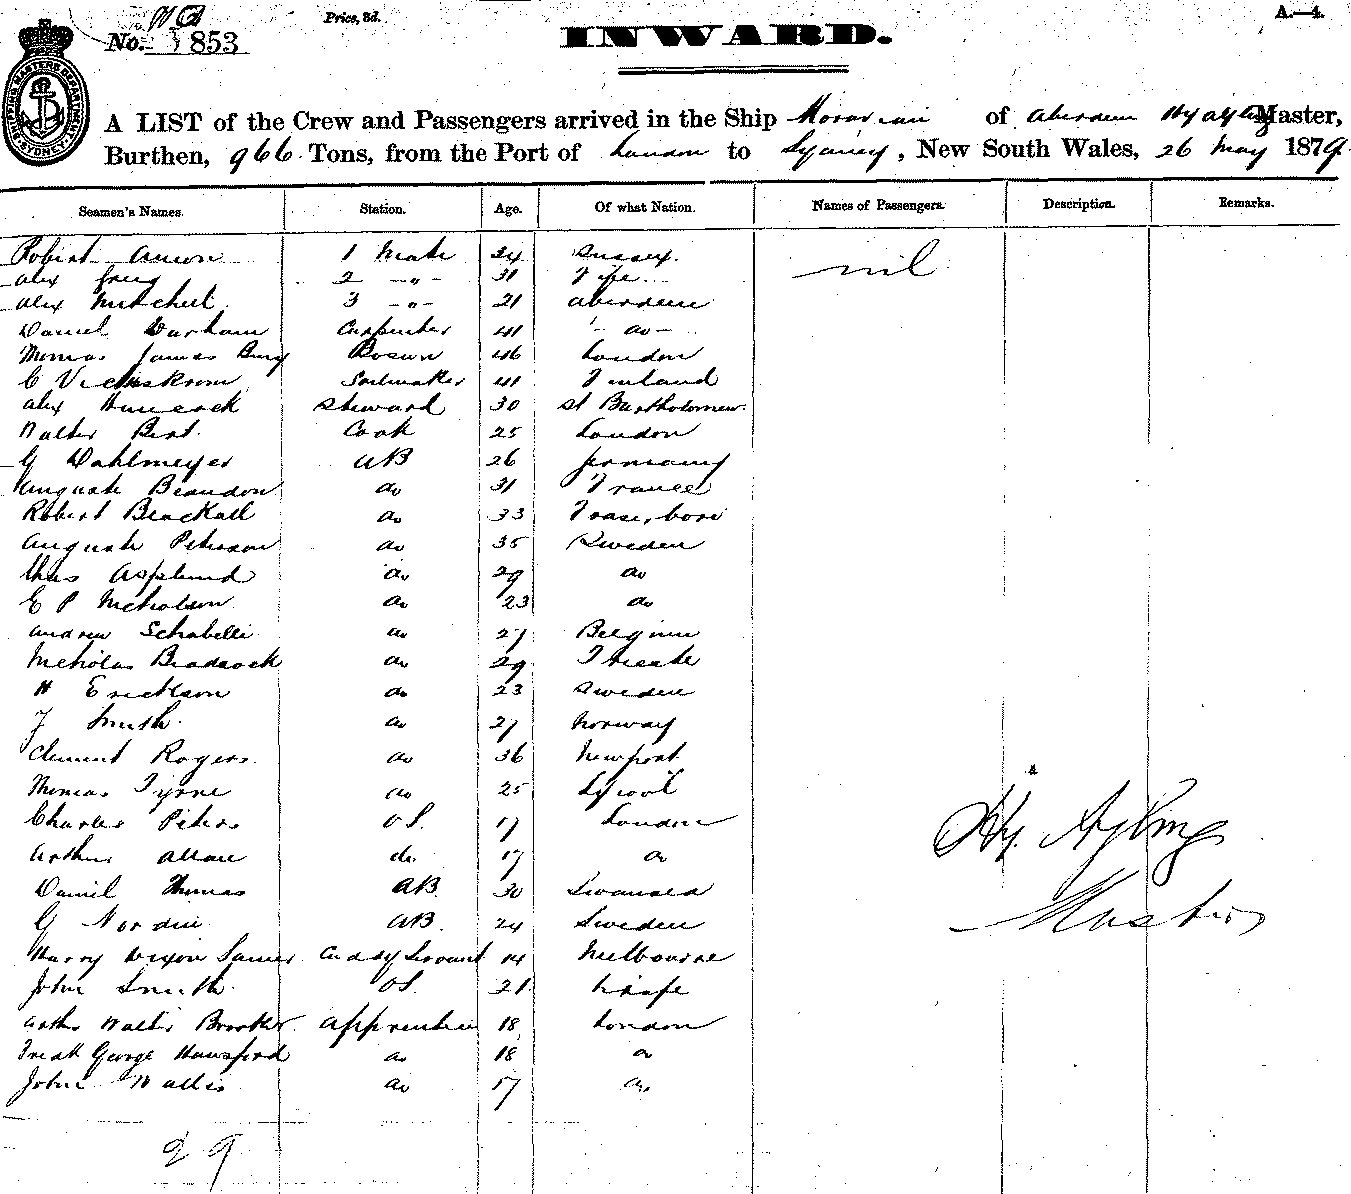 No. 853
Price, 3d.
INWARD.
A.—4.
SHIPPING MASTERS DEPARTMENT SYDNEY
A LIST of the Crew and Passengers arrived in the Ship Moravian of Aberdeen Hy Ayling Master,
Burthen, 966 Tons, from the Port of London to Sydney, New South Wales, 26 May 1879.
Seamen's Names. Station. Age. Of what Nation. Names of Passengers. Description. Remarks.
Robert 1 Mate 34 Sussex. nil
Alex Greig 2 -"- 31 Fife
Alex Mitchell 3 -"- 21 Aberdeen
Daniel Durham Carpenter 41 - do -
Thomas James Bury Bosun 46 London
C Sailmaker 41 Finland
Alex Hancock Steward 30 St Bartholomew
Walter Bert. Cook 25 London
G Dahlmeyer AB 26 Germany
Auguste Beaudon do 31 France
Robert Blackall do 33
August Peterson do 35 Sweden
Chas Asplund do 29 do
E P Nicholson do 23 do
Andrew Schabelli do 27 Belgium
Nicholas Braddock do 29 Trieste
H Erickson do 23 Sweden
J Smith do 27 Norway
Clement Rogers do 36 Newport
Thomas Tyrne do 25 L'pool
Charles Peters OS. 17 London
Arthur do. 17 do
Daniel Thomas AB 30 Swansea
G Nordin AB. 24 Sweden
Harry Dixon Cuddy Servant 14 Melbourne
John Smith OS. 21
Arthur Walter Brooker Apprentice 18 London
Fredk George Hansford do 18 do
John Wallis do 17 do
Hy. Ayling
Master
29